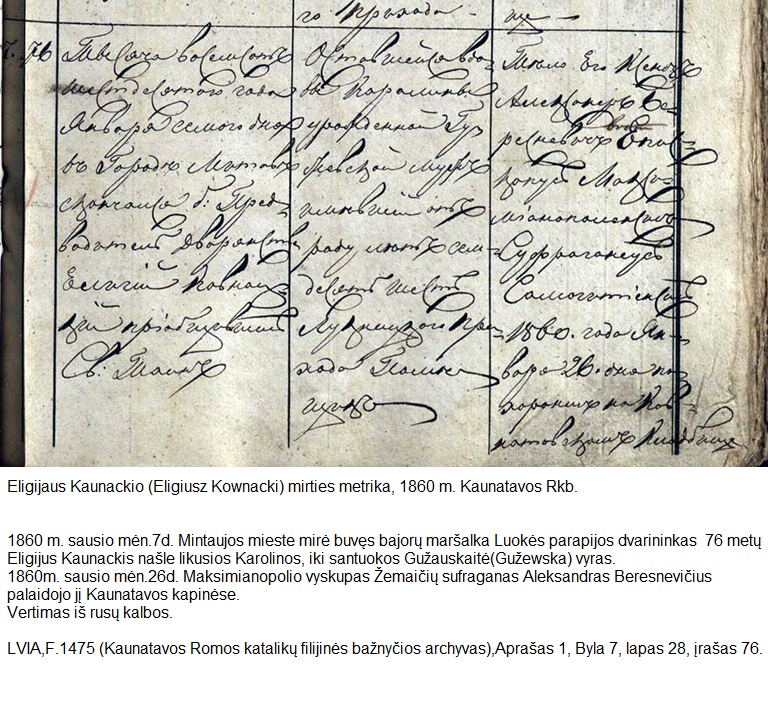 го Прихода
ще
76
Тысяча восемсотъ
шестдесятого года
Января семого дня
въ Городѣ Митавѣ
скончался б: Пред-
водитель Дворянства
Елигій Ковнац-
кій пріобщенный
Св: Таинъ
Оставшейся вдо-
вы Каролины
урожденной Гу
жевской мужъ
имѣвшій отъ
роду лѣтъ сем-
десятъ шесть
Лукницкого При-
хода Помѣ-
щикъ
Тѣло Его Ксендзъ
Александръ Бе-
ресневичъ Епис-
копус Макси-
мианополенсисъ
Суфраганеусъ
Самогитіенсисъ
1860. года Ян-
варя 26. дня по-
хоронилъ на Ков-
натовскомъ Кладбище
Eligijaus Kaunackio (Eligiusz Kownacki) mirties metrika, 1860 m. Kaunatavos Rkb.
1860 m. sausio mėn.7d. Mintaujos mieste mirė buvęs bajorų maršalka Luokės parapijos dvarininkas 76 metų
Eligijus Kaunackis našle likusios Karolinos, iki santuokos Gužauskaitė(Gužewska) vyras.
1860m. sausio mėn.26d. Maksimianopolio vyskupas Žemaičių sufraganas Aleksandras Beresnevičius
palaidojo jį Kaunatavos kapinėse.
Vertimas iš rusų kalbos.
LVIA,F.1475 (Kaunatavos Romos katalikų filijinės bažnyčios archyvas),Aprašas 1, Byla 7, lapas 28, įrašas 76.